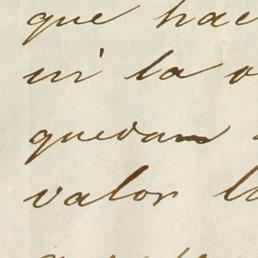 que hac
ni la o
quedan
valor lo